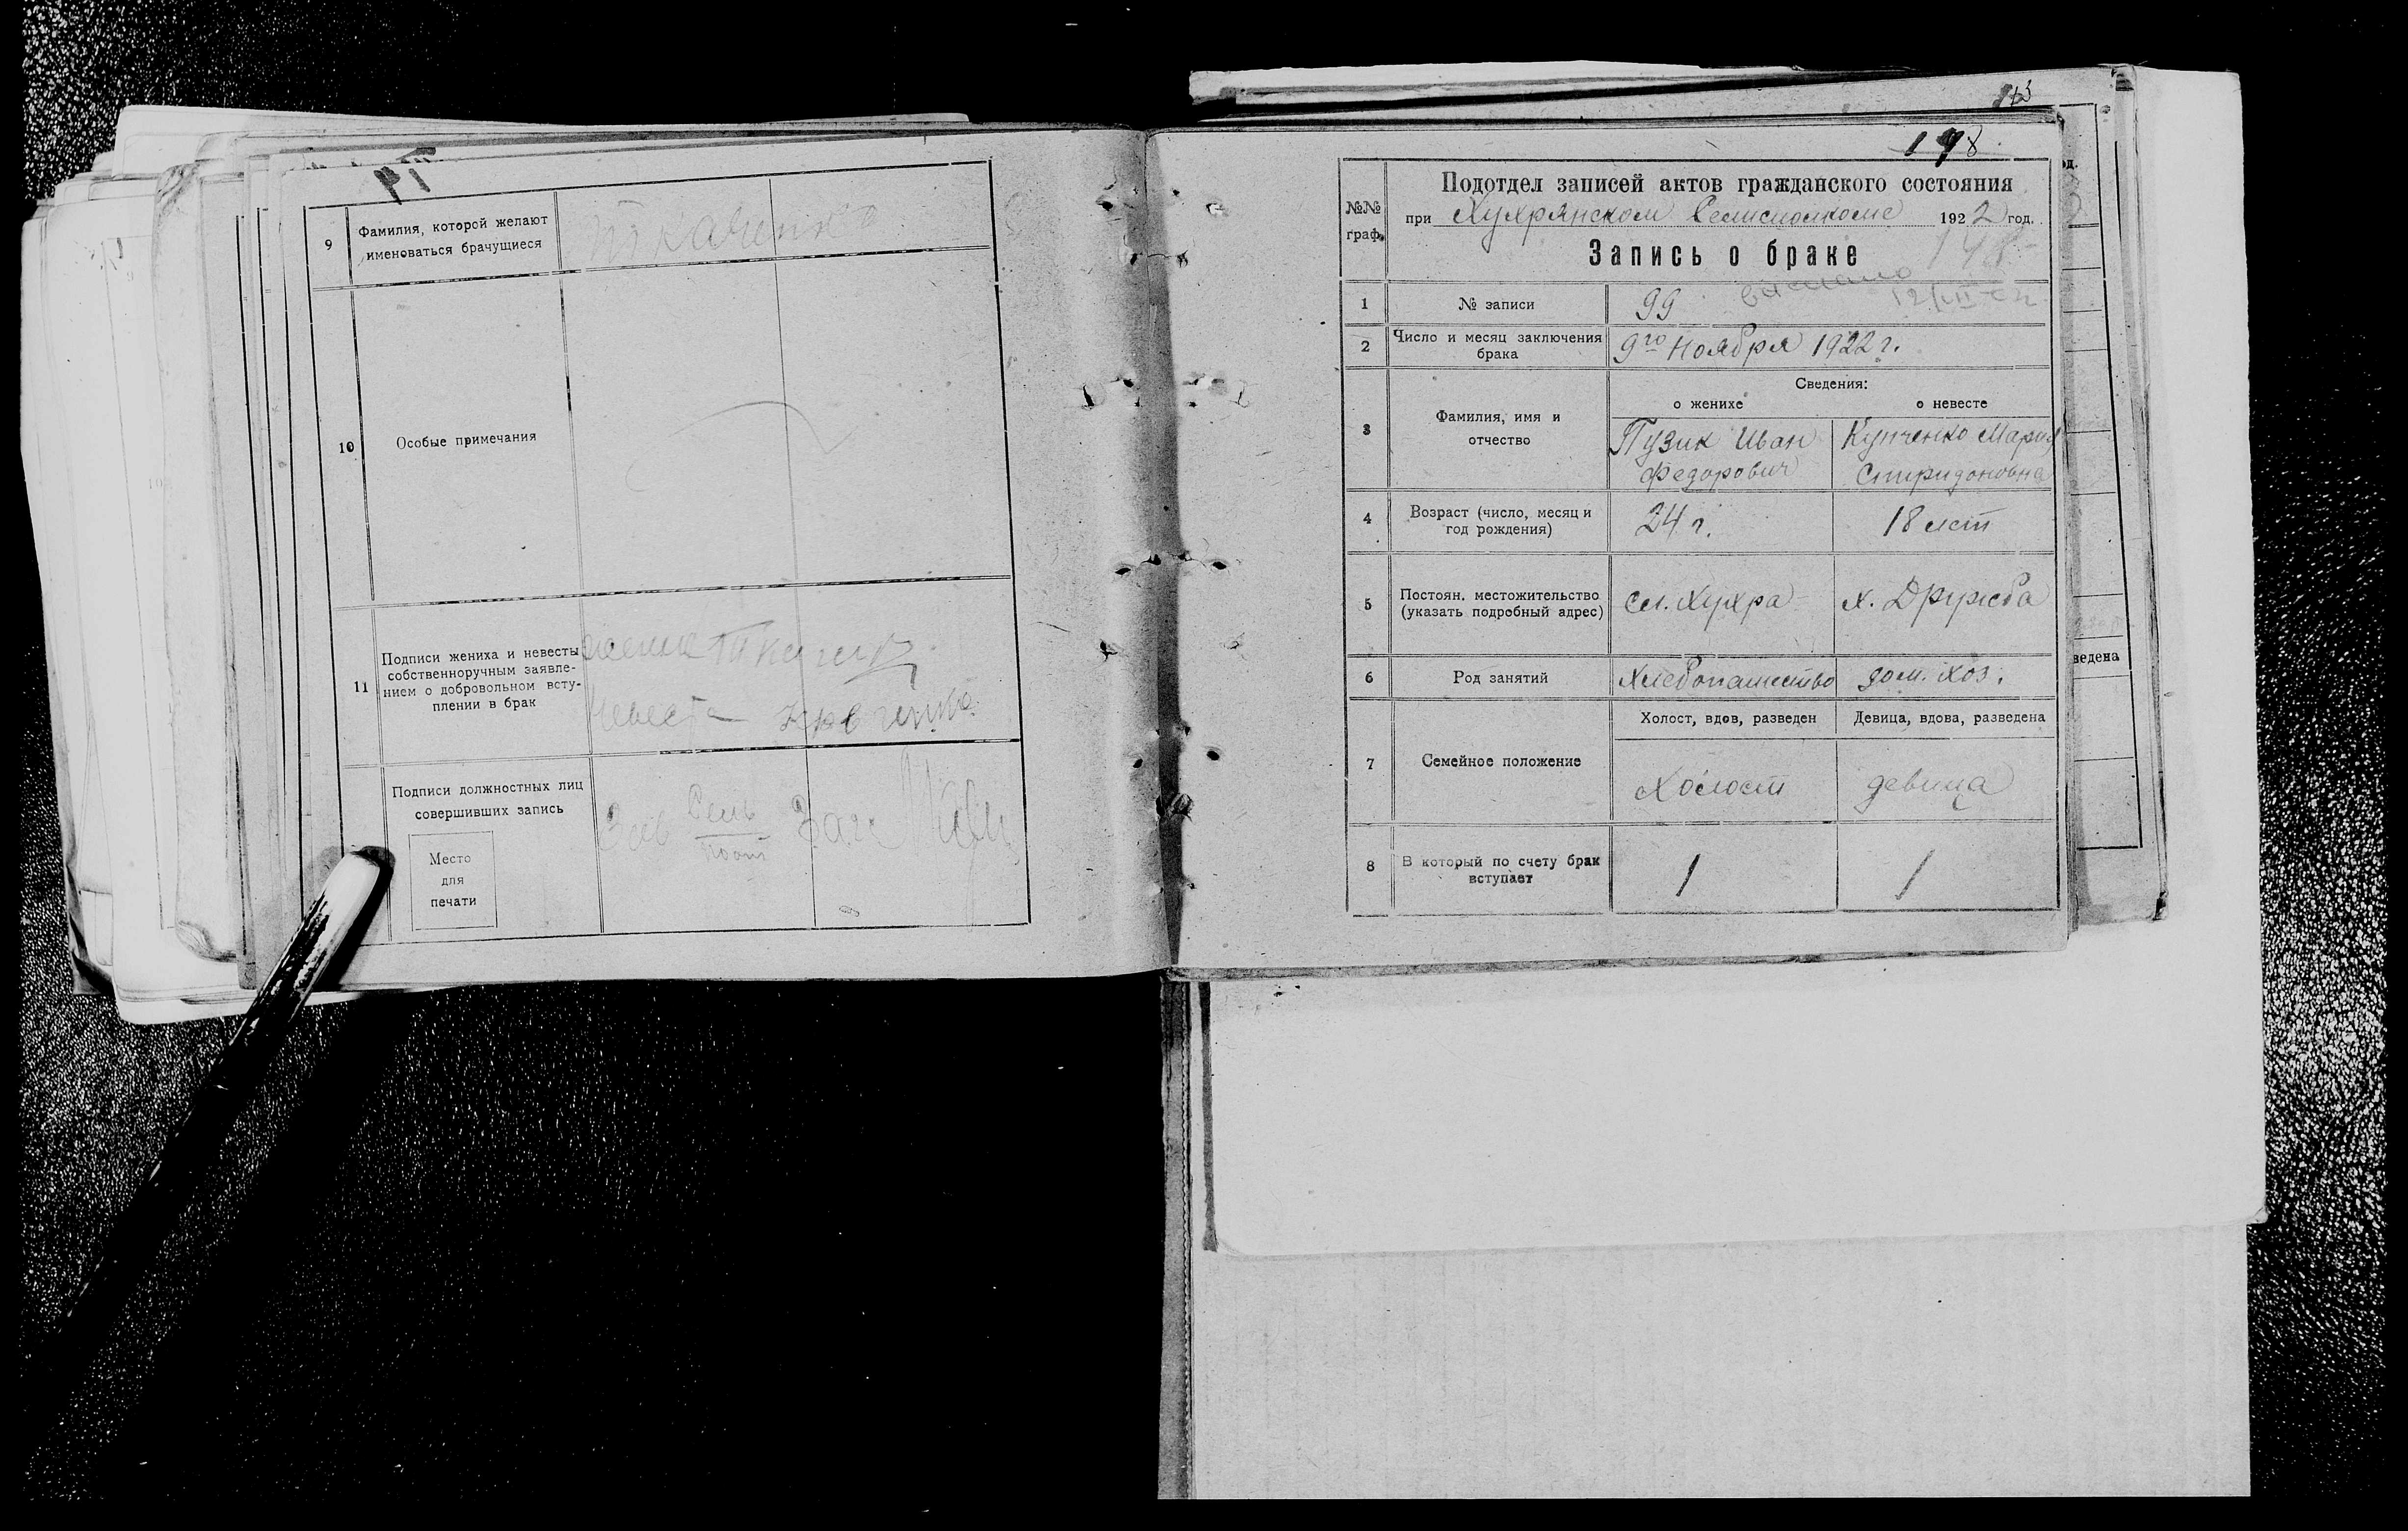 9
Фамилия, которой желают
именоваться брачущиеся
Ткаченко
10
Особые примечания
11
Подписи жениха и невесты
собственноручным заявле-
нием о добровольном всту-
плении в брак
Невеста
Подписи должностных лиц
совершивших запись
Место
для
печати
№№
граф.
Подотдел записей актов гражданского состояния
при Хухрянском 1922 год.
Запись о браке
1
№ записи
99
2
Число и месяц заключения
брака
9го Ноября 1922 г.
3
Фамилия, имя и
отчество
Сведения:
о женихе
о невесте
Пузик Иван
Федорович
Купченко Мария
Спиридоновна
4
Возраст (число, месяц и
год рождения)
24 г.
18 лет
5
Постоян. местожительство
(указать подробный адрес)
сл. Хухра
х. Дружба
6
Род занятий
Хлебопашество
дом. хоз.
7
Семейное положение
Холост, вдов, разведен
Девица, вдова, разведена
Холост
девица
8
В который по счету брак
вступает
1
1
ведена